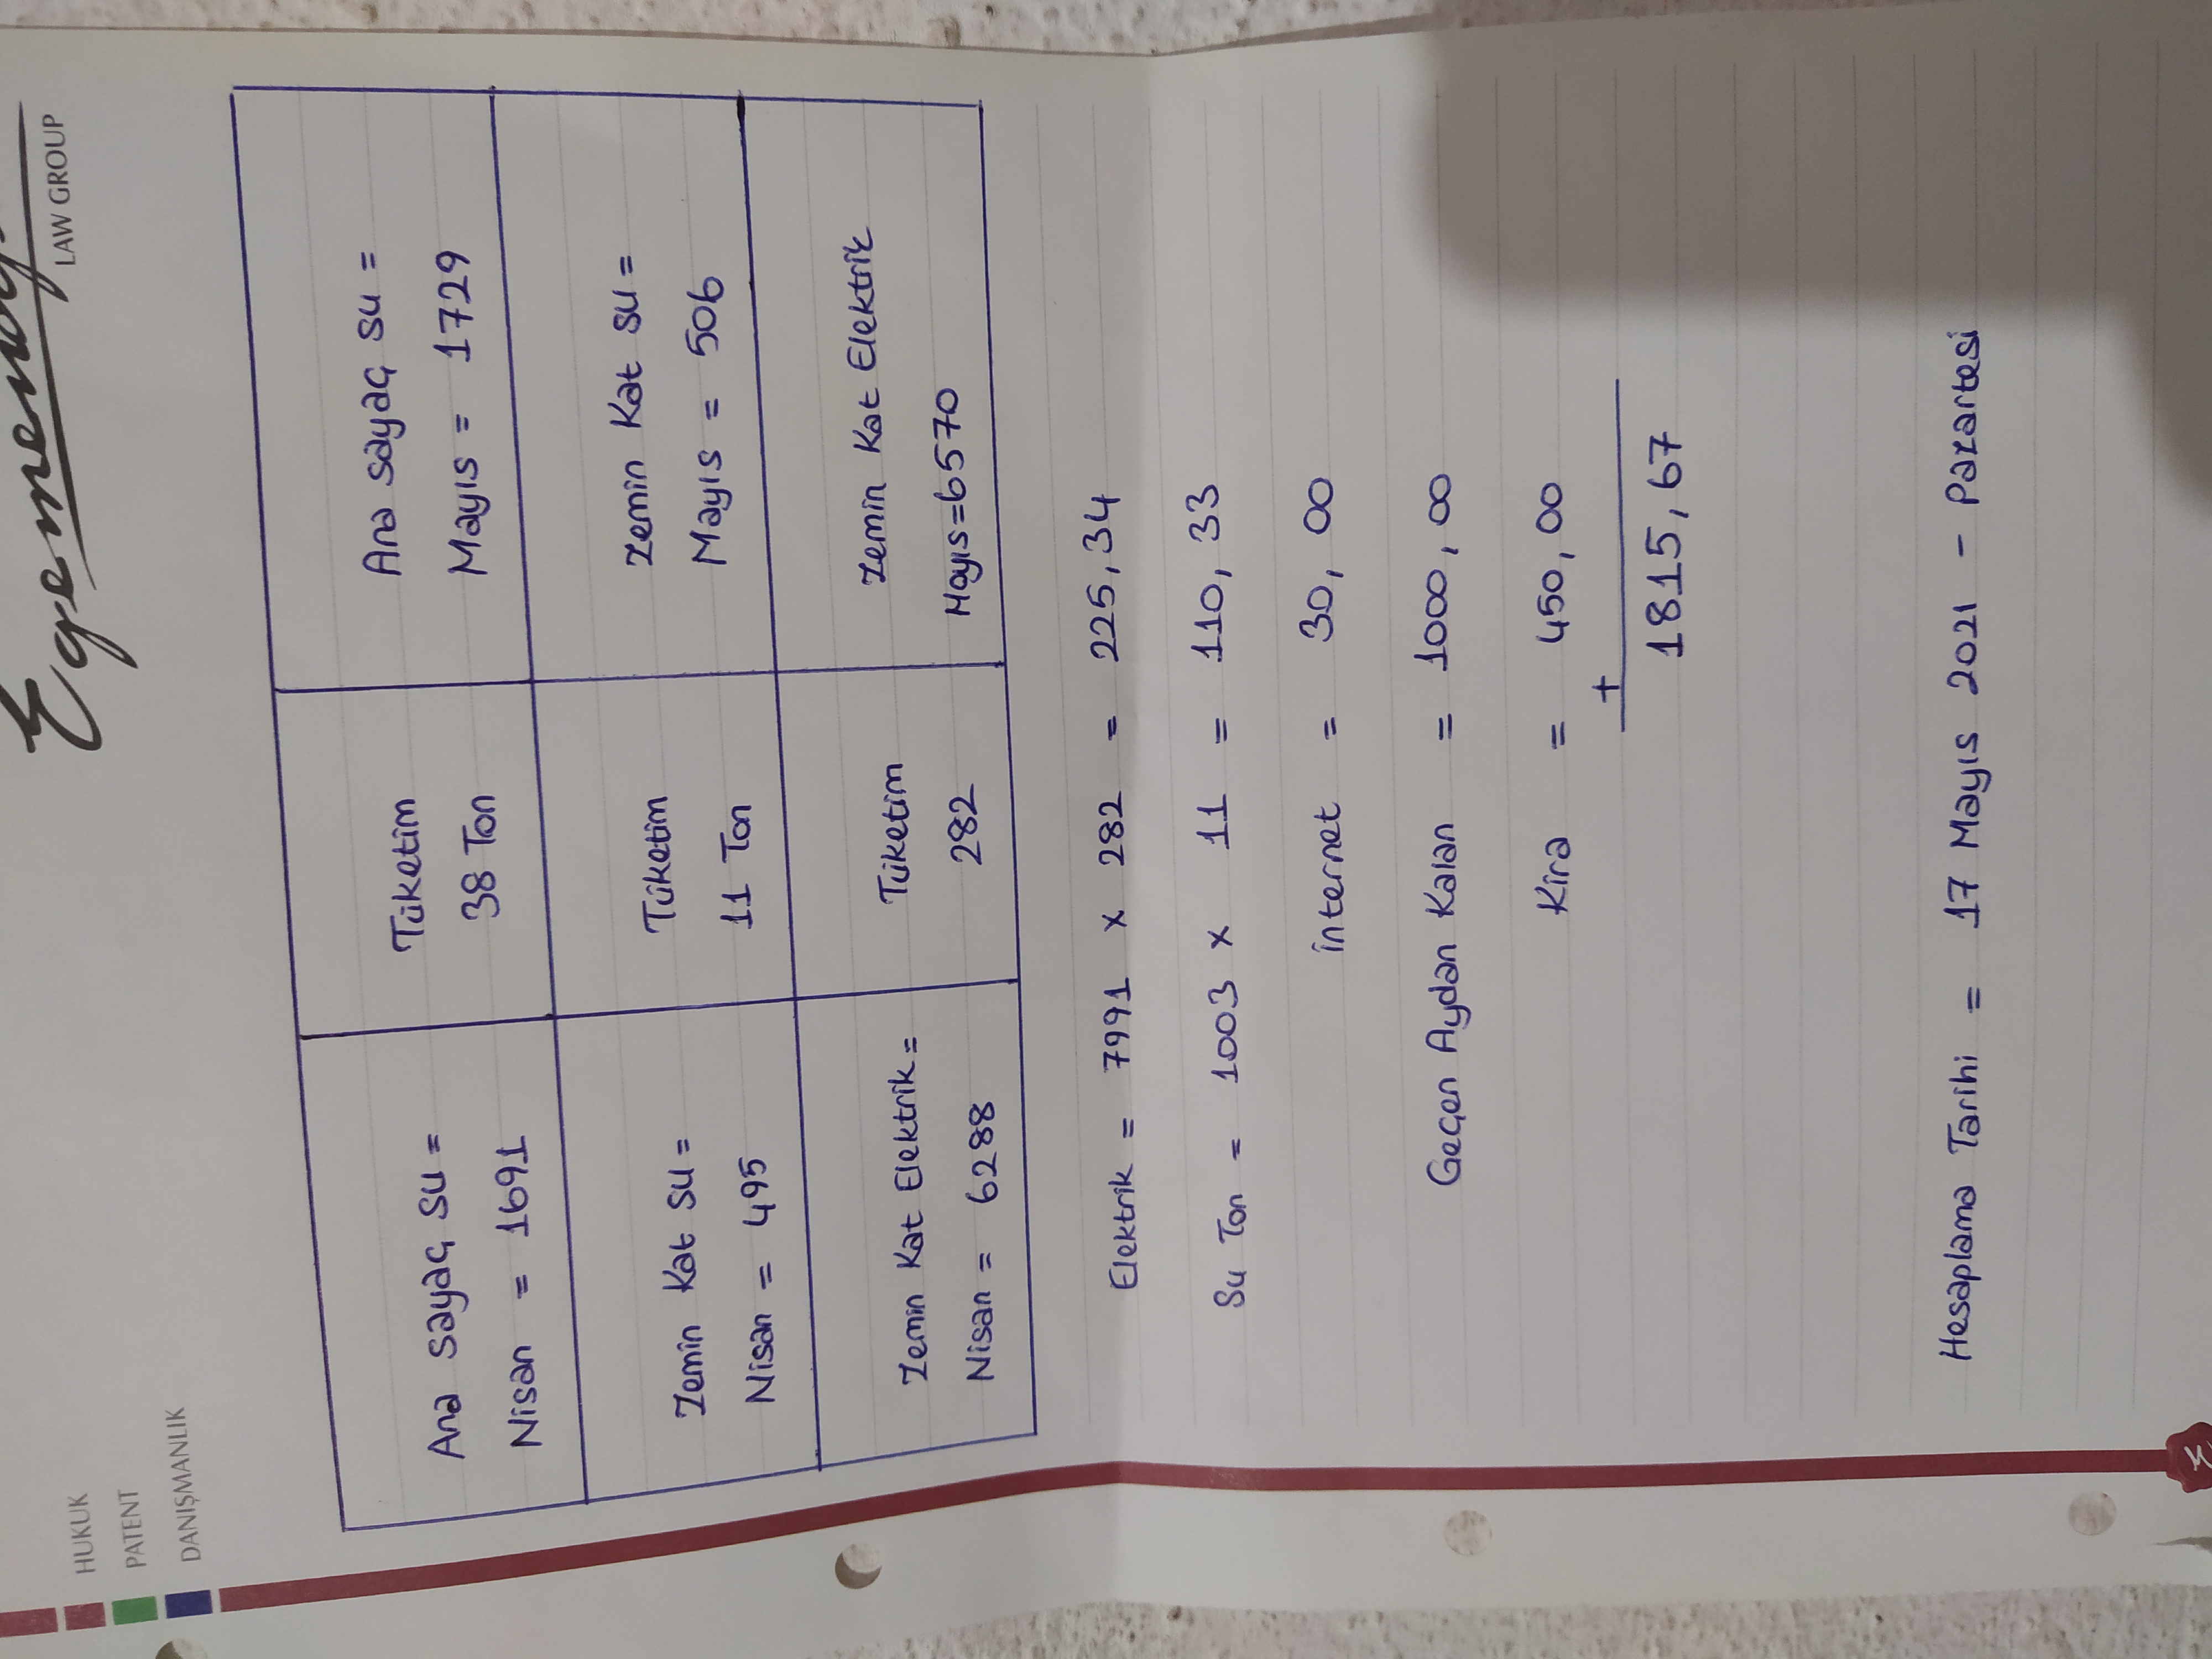 HUKUK
PATENT
DANIŞMANLIK
LAW GROUP
Ana sayaç su =
Nisan = 1691
Tüketim
38 Ton
Ana sayaç su =
Mayıs = 1729
Zemin Kat su =
Nisan = 495
Tüketim
11 Ton
Zemin Kat su =
Mayıs = 506
Zemin Kat Elektrik =
Nisan = 6288
Tüketim
282
Zemin Kat Elektrik
Mayıs=6570
Elektrik = 7991 x 282 = 225,34
Su Ton = 1003 x 11 = 110,33
internet = 30,00
Geçen Aydan Kalan = 1000,00
Kira = 450,00
+
1815,67
Hesaplama Tarihi = 17 Mayıs 2021 - Pazartesi